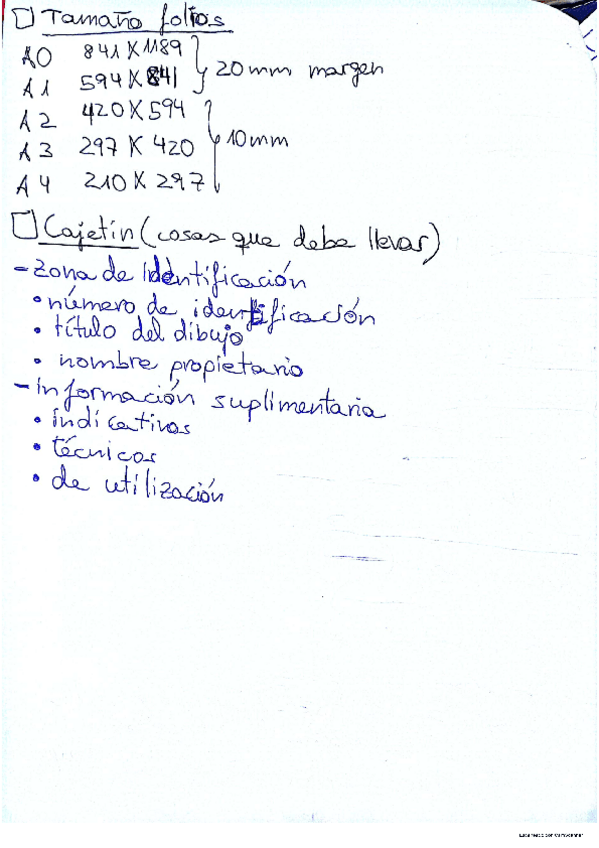 Tamaño folios
A0 841 X 1189
A1 594 X 841 20mm margen
A2 420 X 594
A3 297 X 420 10mm
A4 210 X 297
Cajetín (cosas que debe llevar)
- Zona de Identificación
• número de identificación
• título del dibujo
• nombre propietario
- información suplimentaria
• indicativos
• técnicos
• de utilización